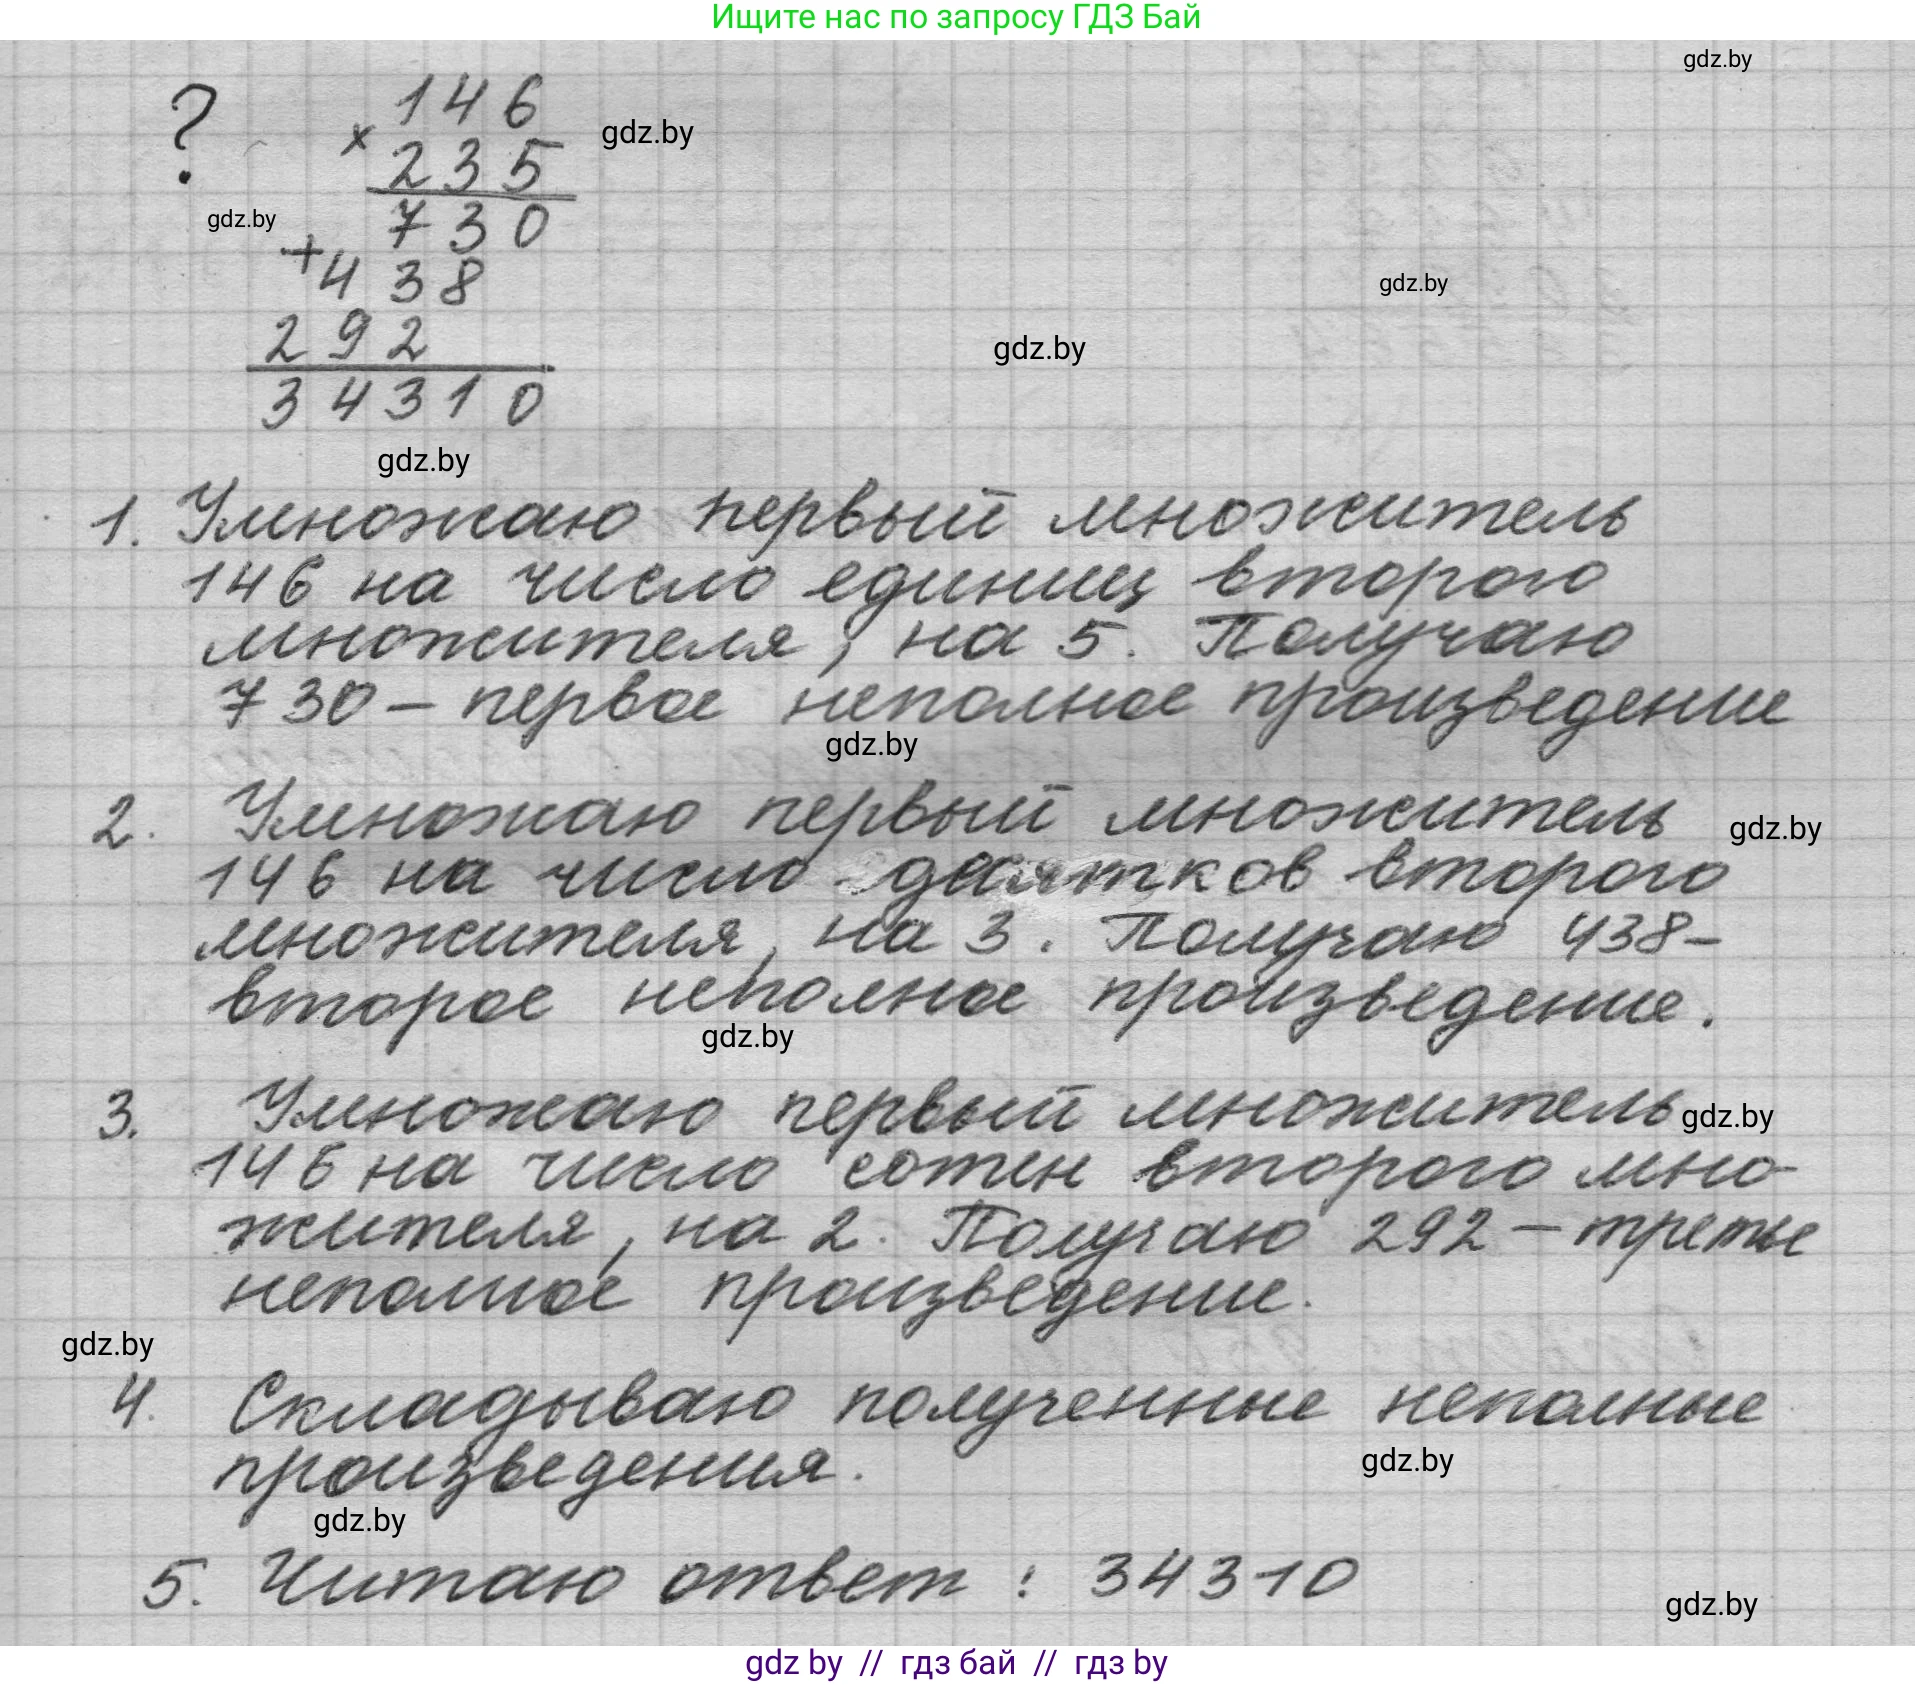 Ищите нас по запросу ГДЗ Бай
gdz.by
?
146
× 235 gdz.by
gdz.by
730
+ 438
gdz.by
292
gdz.by
34310
gdz.by
1. Умножаю первый множитель
146 на число единиц второго
множителя, на 5. Получаю
730 – первое неполное произведение
gdz.by
2. Умножаю первый множитель
gdz.by
146 на число десятков второго
множителя, на 3. Получаю 438 –
второе неполное произведение.
gdz.by
3. Умножаю первый множитель
gdz.by
146 на число сотен второго мно-
жителя, на 2. Получаю 292 – третье
неполное произведение.
gdz.by
4. Складываю полученные неполные
произведения.
gdz.by
gdz.by
5. Читаю ответ: 34310
gdz.by
gdz by // гдз бай // гдз by